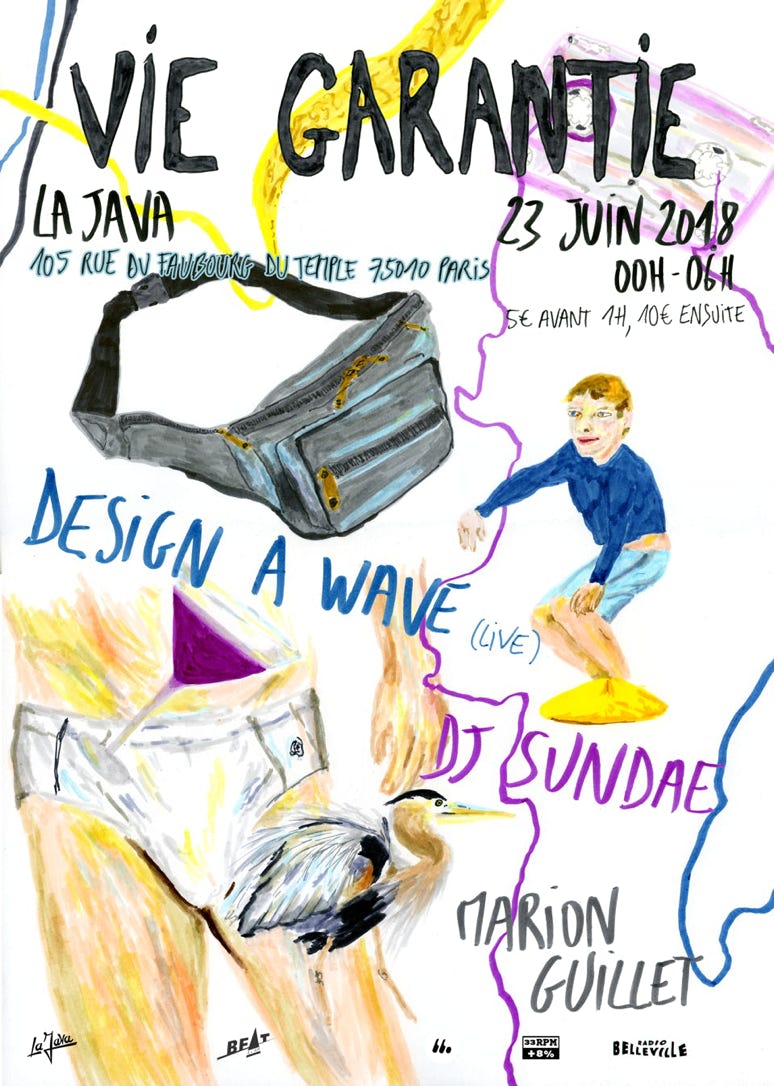 VIE GARANTIE
LA JAVA
105 RUE DU FAUBOURG DU TEMPLE 75010 PARIS
23 JUIN 2018
00H - 06H
5€ AVANT 1H, 10€ ENSUITE
DESIGN A WAVE (LIVE)
DJ SUNDAE
MARION
GUILLET
La Java
BEAT
33RPM
+8%
RADIO
BELLEVILLE